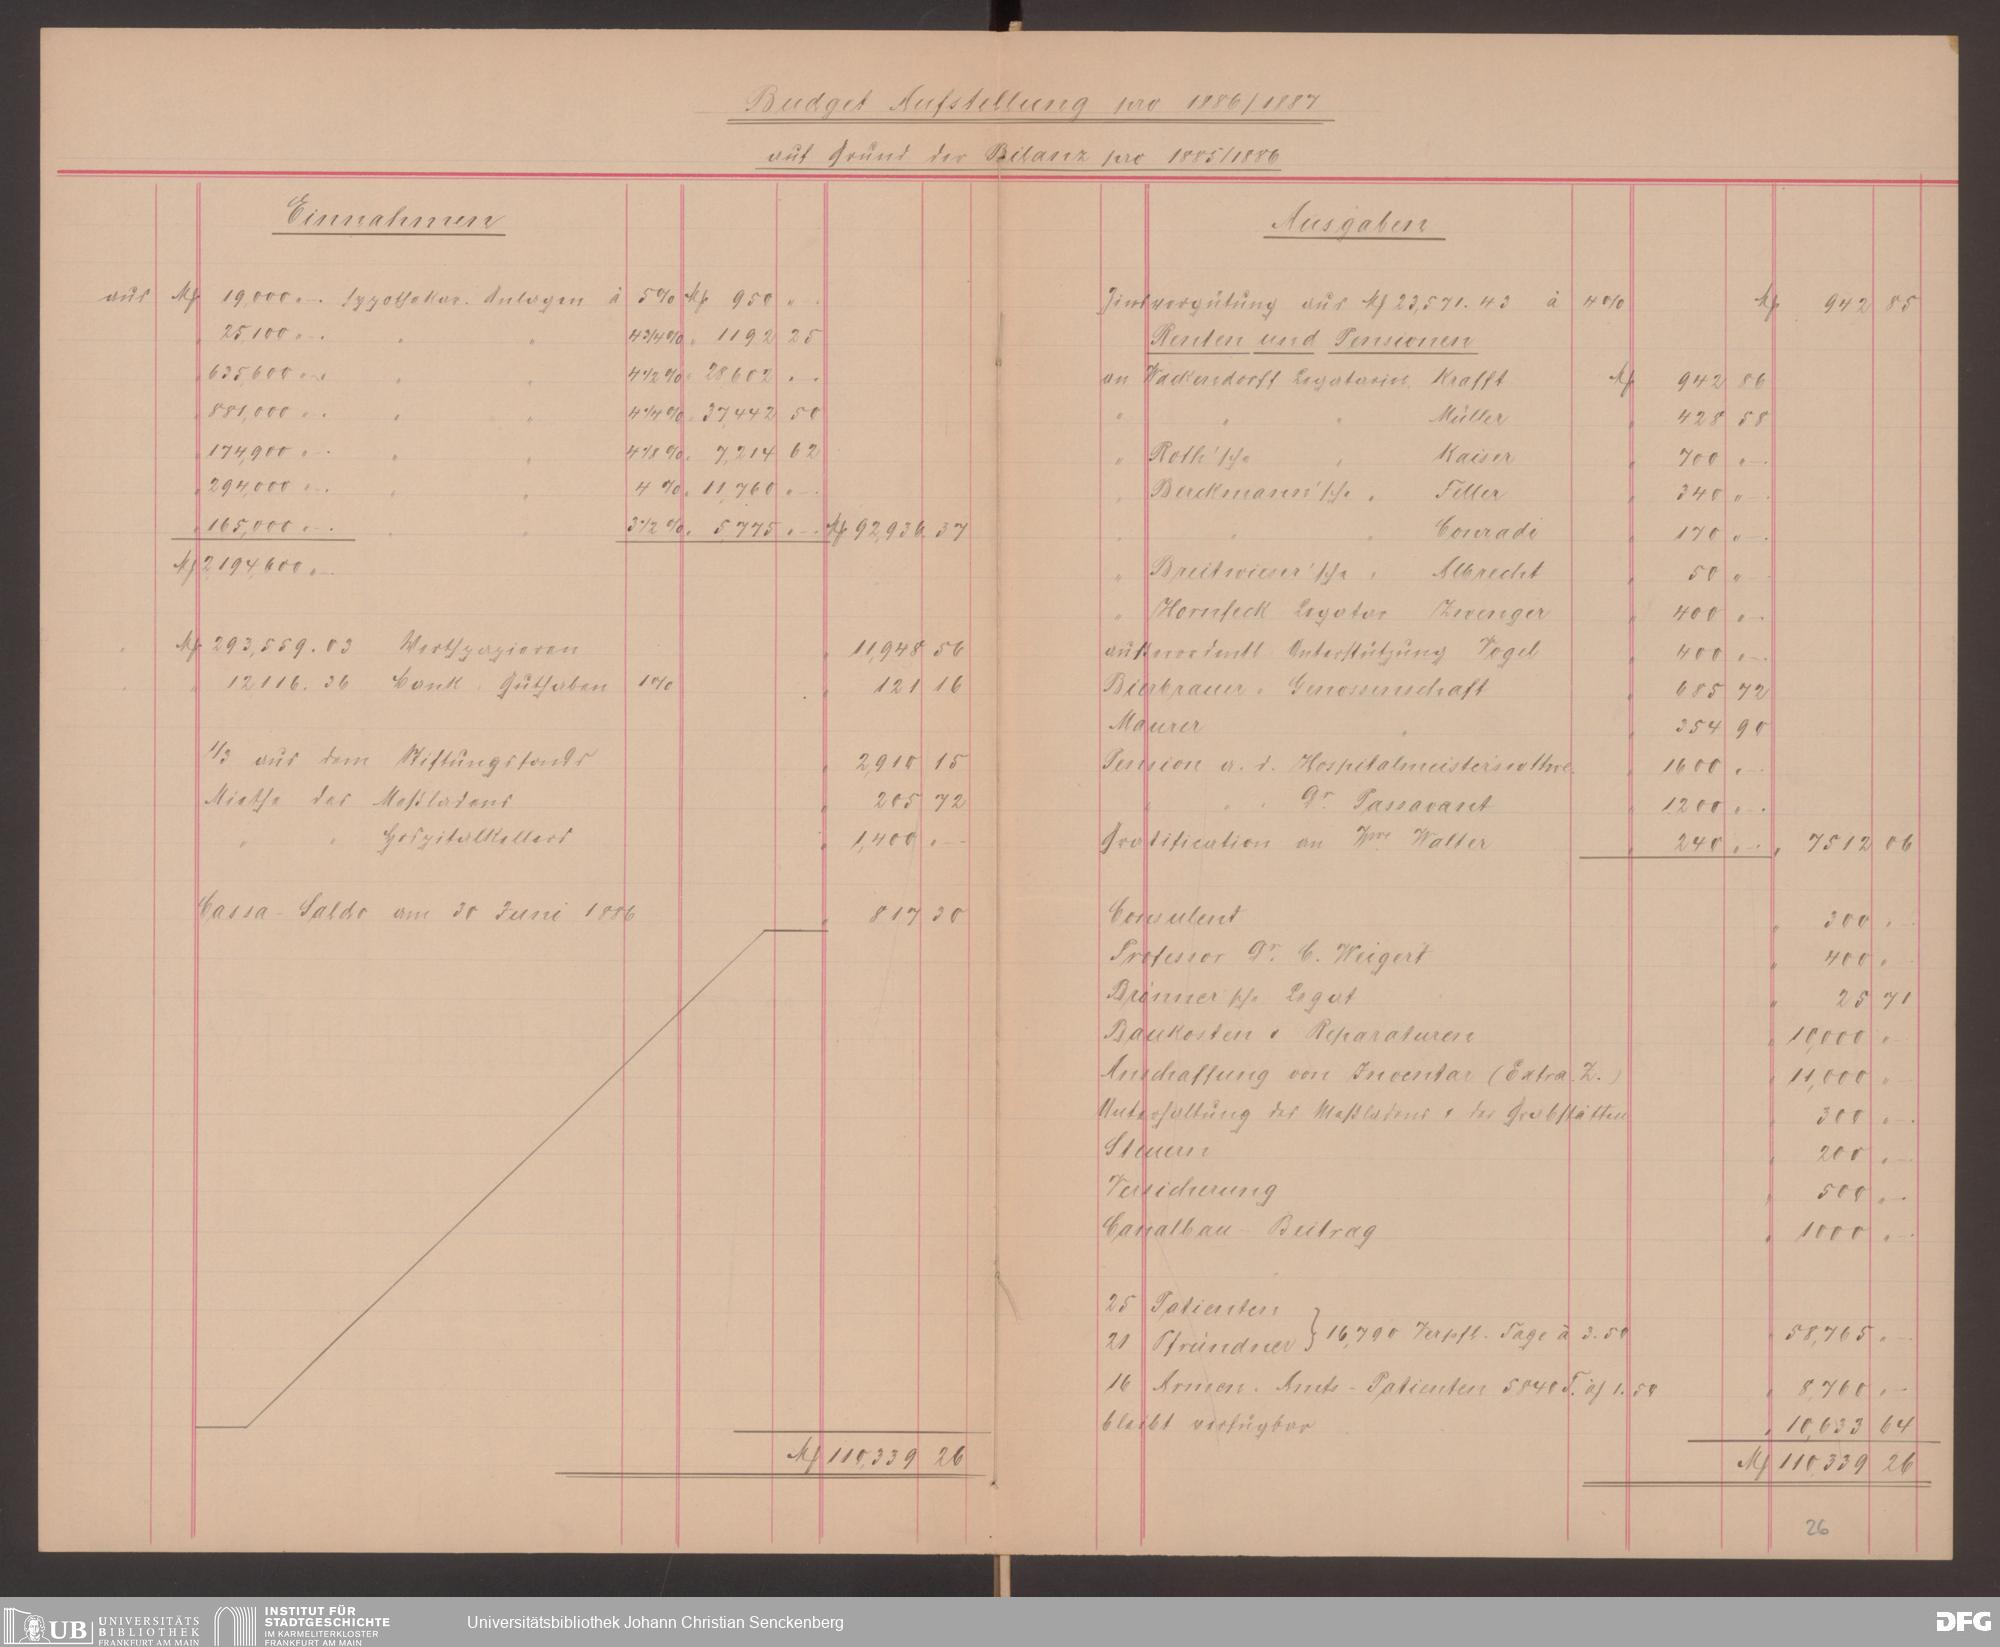 Budget Aufstellung pro 1886/1887
auf Grund der Bilanz pro 1885/1886
Einnahmen
aus M 19,000.- Hypothekar. Anlagen à 5% M 950 " -
" 25,100.- " " 4 3/4% " 1192 25
" 635,600.- " " 4 1/2% " 28,602 . -
" 881,000.- " " 4 1/4% " 37,442 50
" 174,900.- " " 4 1/8% " 7,214 62
" 294,000.- " " 4 % " 11,760 . -
" 165,000.- " " 3 1/2% " 5,775 . - M 92,936 37
M 2,194,600.-
" M 293,559.03 Werthpapieren " 11,948 56
" " 12116.36 Bank-Guthaben 1% " 121 16
1/3 aus dem Stiftungsfonds " 2,910 15
Miethe des Meßladens " 205 72
" " Hospitalkellers " 1,400 . -
Cassa-Saldo am 30 Juni 1886 " 817 30
M 110,339 26
Ausgaben
Zinsvergütung aus M 23,571.43 à 4% M 942 85
Renten und Pensionen
an Wackendorff Legatarin Krafft M 942 86
" " " Müller " 428 58
" Roth'sche " Kaiser " 700 . -
" Berckmann'sche " Feller " 340 " -
" " " Conradi " 170 . -
" Breitwieser'sche " Albrecht " 50 " -
" Hornfeck Legatar Zwenger " 400 . -
außerordentl. Unterstützung Vogel " 400 . -
Bierbrauer-Genossenschaft " 685 72
Maurer " " 354 90
Pension a. d. Hospitalmeisterswittwe. " 1600 . -
" " " Dr. Passavant " 1200 . -
Gratification an Wwe. Walter " 240 . - " 7512 06
Consulent " 300 . -
Professor Dr. C. Weigert " 400 . -
Brönner'sche Legat " 25 71
Baukosten & Reparaturen " 10,000 . -
Anschaffung von Inventar (Extra. Z.) " 11,000 " -
Unterhaltung des Meßladens & der Grabstätten " 300 . -
Steuern " 200 . -
Versicherung " 500 . -
Canalbau-Beitrag " 1000 . -
25 Patienten
21 Pfründner } 16,790 Verpfl. Tage à 3.50 " 58,765 . -
16 Armen-Amts-Patienten 5840 T. à 1.50 " 8,760 . -
bleibt verfügbar " 10,633 64
M 110,339 26
26
UB UNIVERSITÄTS
BIBLIOTHEK
FRANKFURT AM MAIN
INSTITUT FÜR
STADTGESCHICHTE
IM KARMELITERKLOSTER
FRANKFURT AM MAIN
Universitätsbibliothek Johann Christian Senckenberg
DFG